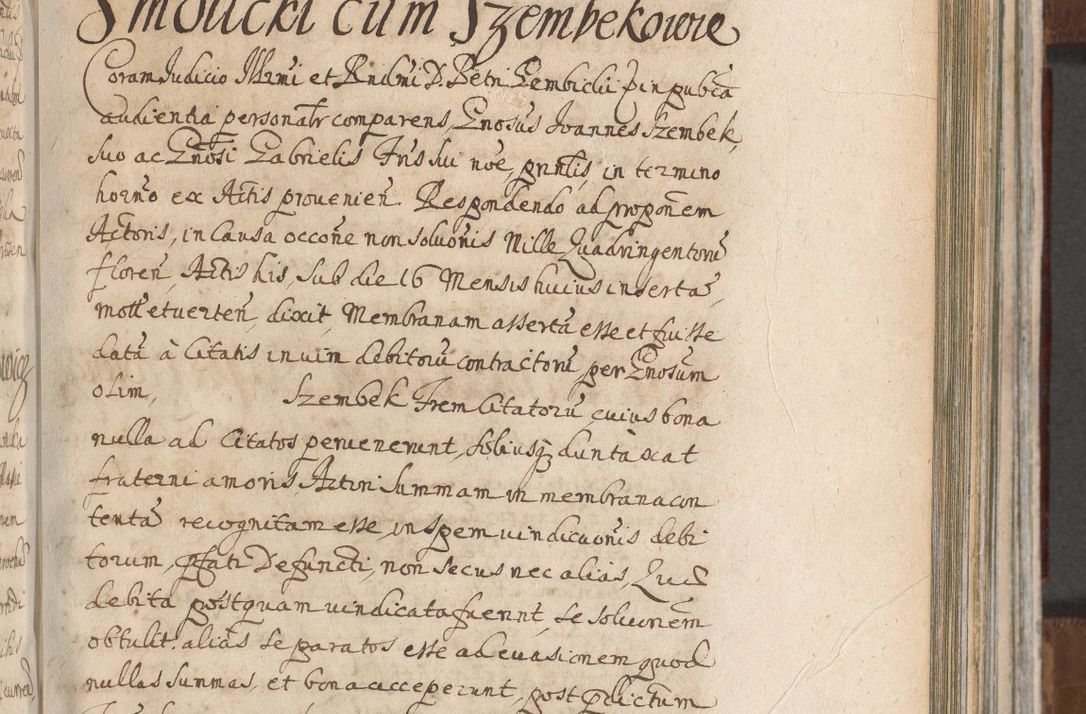 Smolicki cum Szembekowie
Coram Judicio Illrmi et Rndmi D. Petri Gembicki Ep̃i in pub̃ca
audientia personalr comparens, Gnosus Joannes Szembek,
suo ac Gnosi Gabrielis Fris sui noe, pnntis, in termino
horno ex Actis prouenien. Respondendo ad proponem
Actoris, in causa occone non soluonis Mille Quadringentoru
floren, Actis his, sub die 16 Mensis huius inserta,
mott etuerten, dixit, Membranam asserta esse et fuisse
data à Citatis in uim debitoru contractoru per Gnosum
olim, Szembek Frem Citatoru, cuius bona
nulla ad Citatos peruenerunt, sobiusq duntaxat
fraterni amoris, Actiri summam in membrana con
tenta recognitam esse, in spem uindicaonis debi
torum, pfati Defuncti, non secus nec alias, Quæ
debita postquam uindicata fuerint, se soluionem
obtulit. alias se paratos esse ad euasionem quod
nullas summas, et bona acceperunt, post pdictum